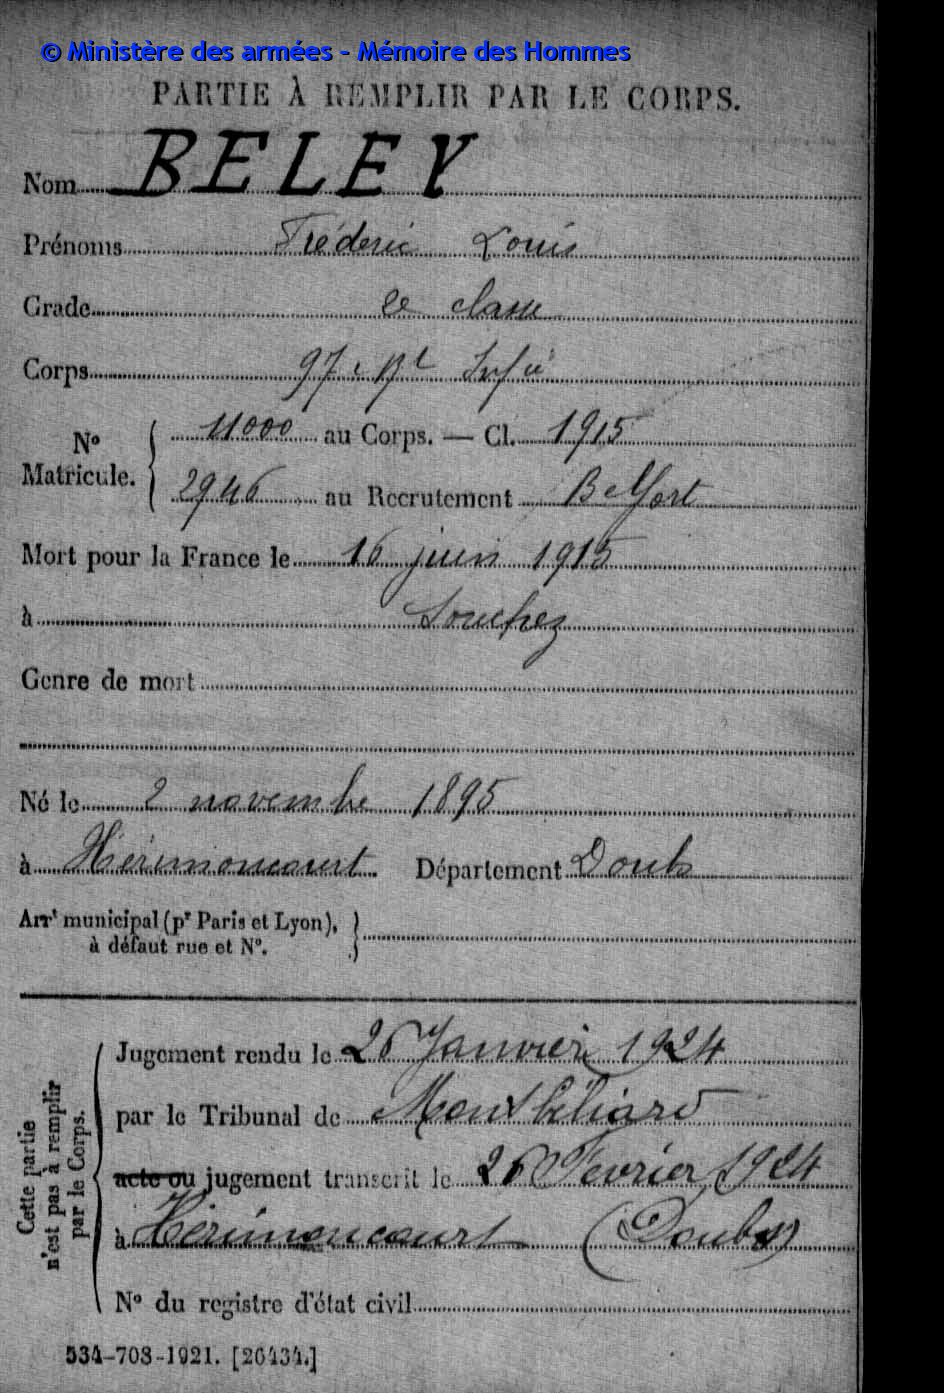 © Ministère des armées - Mémoire des Hommes
PARTIE À REMPLIR PAR LE CORPS.
Nom BELEY
Prénoms Fréderic Louis
Grade 2e classe
Corps 97e Rt Infie
No Matricule. 11000 au Corps. — Cl. 1915
2946 au Recrutement Belfort
Mort pour la France le 16 juin 1915
à Souchez
Genre de mort
Né le 2 novembre 1895
à Hérimoncourt Département Doubs
Arrt municipal (pr Paris et Lyon),
à défaut rue et No.
Cette partie
n'est pas à remplir
par le Corps.
Jugement rendu le 26 Janvier 1924
par le Tribunal de Montbéliard
acte ou jugement transcrit le 26 Fevrier 1924
à Hérimoncourt (Doubs)
No du registre d'état civil
534-708-1921. [26434.]